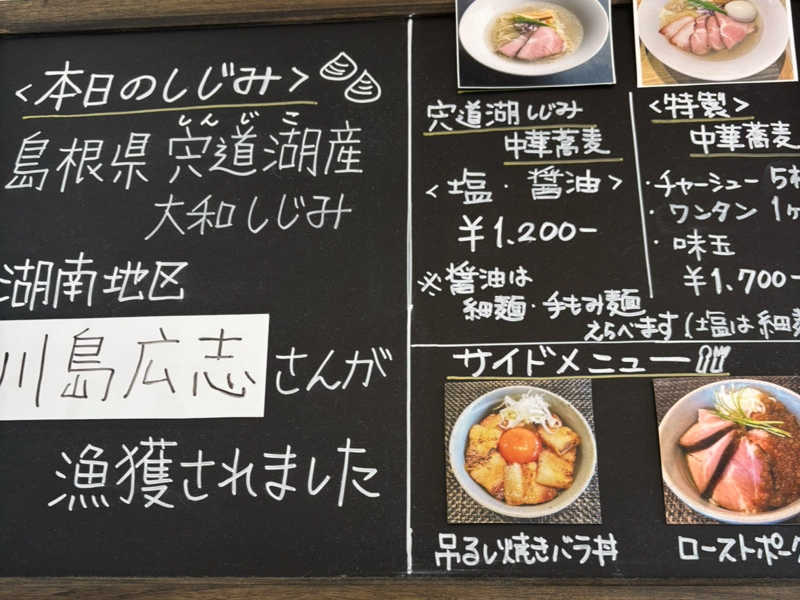 <本日のしじみ>
しんじこ
島根県 宍道湖産
大和しじみ
湖南地区
川島広志さんが
漁獲されました
宍道湖しじみ
中華蕎麦
<塩・醤油>
¥1,200-
※醤油は
細麺・手もみ麺
えらべます(塩は細麺
<特製>
中華蕎麦
・チャーシュー 5枚
・ワンタン 1ヶ
・味玉
¥1,700-
サイドメニュー
吊るし焼きバラ丼
ローストポーク